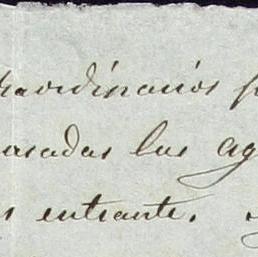 raordinarios p
pasadas las ag
s entrante.